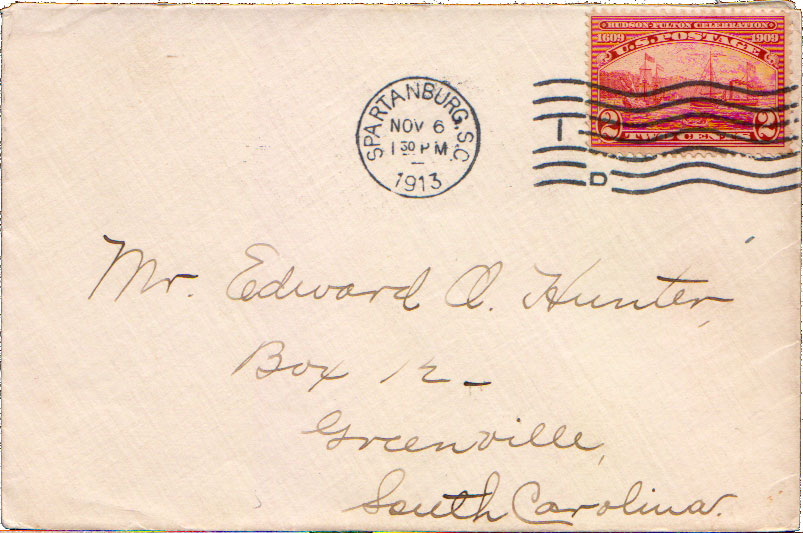 HUDSON-FULTON CELEBRATION
1609 1909
U.S. POSTAGE
2 TWO CENTS 2
SPARTANBURG, S.C.
NOV 6
1 30 PM
1913
1
D
Mr. Edward O. Hunter,
Box 12 -
Greenville,
South Carolina.